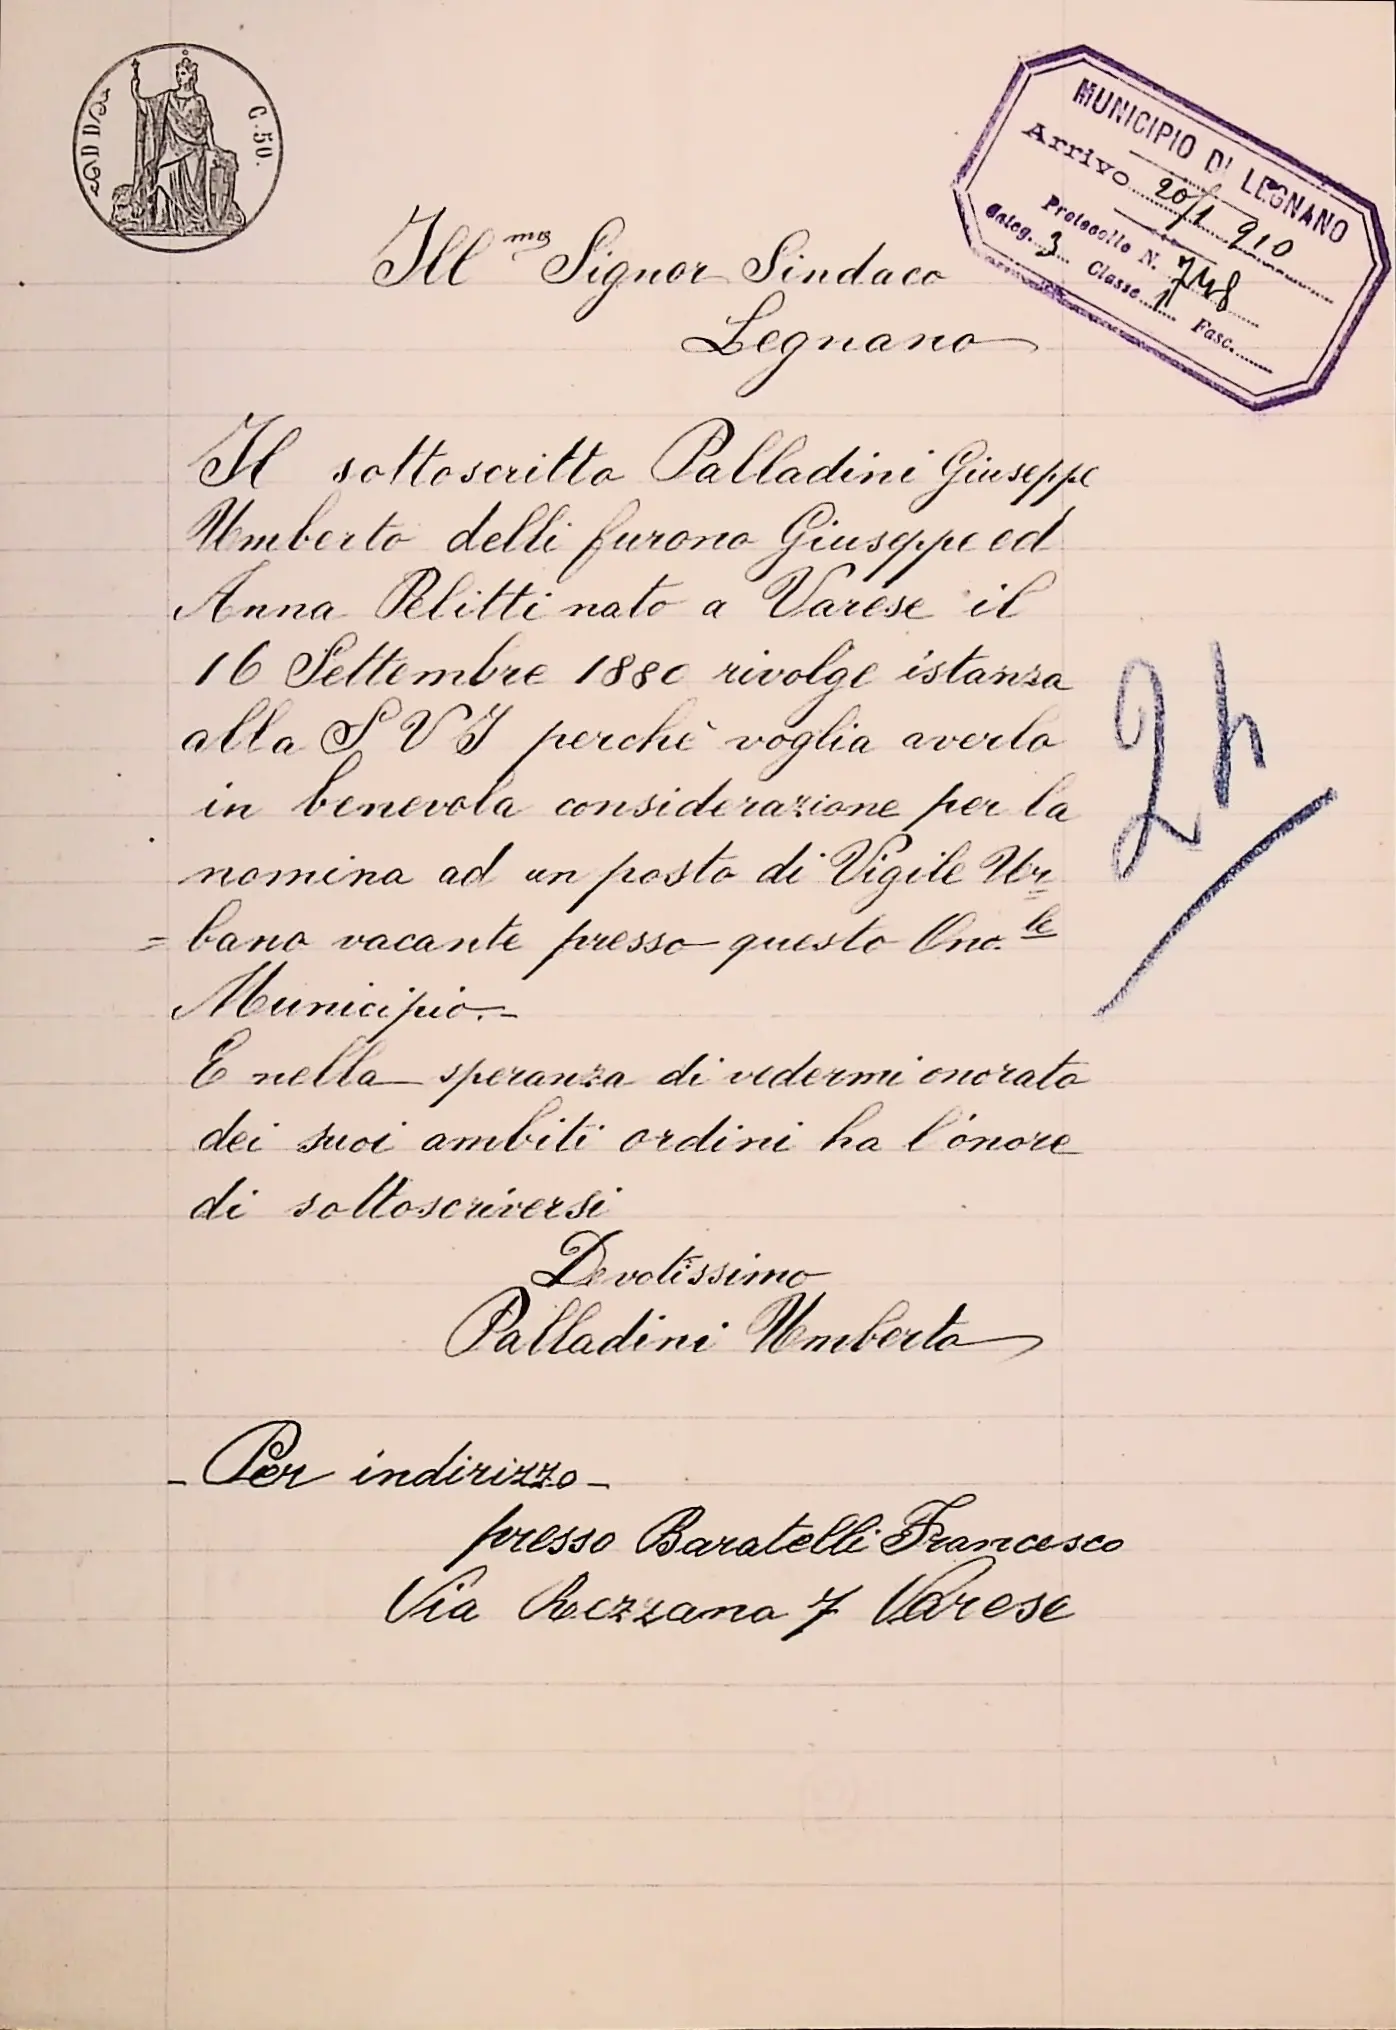 C. 50.
MUNICIPIO DI LEGNANO
Arrivo 20/1 910
Protocollo N. 748
Categ. 3 Classe 11 Fasc.
Ill.mo Signor Sindaco
Legnano
Il sottoscritto Palladini Giuseppe
Umberto delli furono Giuseppe ed
Anna Pelitti nato a Varese il
16 Settembre 1880 rivolge istanza
alla S V I perchè voglia averlo
in benevola considerazione per la
nomina ad un posto di Vigile Ur=
=bano vacante presso questo Ono.le
Municipio.-
E nella speranza di vedermi onorato
dei suoi ambiti ordini ha l'onore
di sottoscriversi
Devotissimo
Palladini Umberto
- Per indirizzo -
presso Baratelli Francesco
Via Rezzano 7 Varese